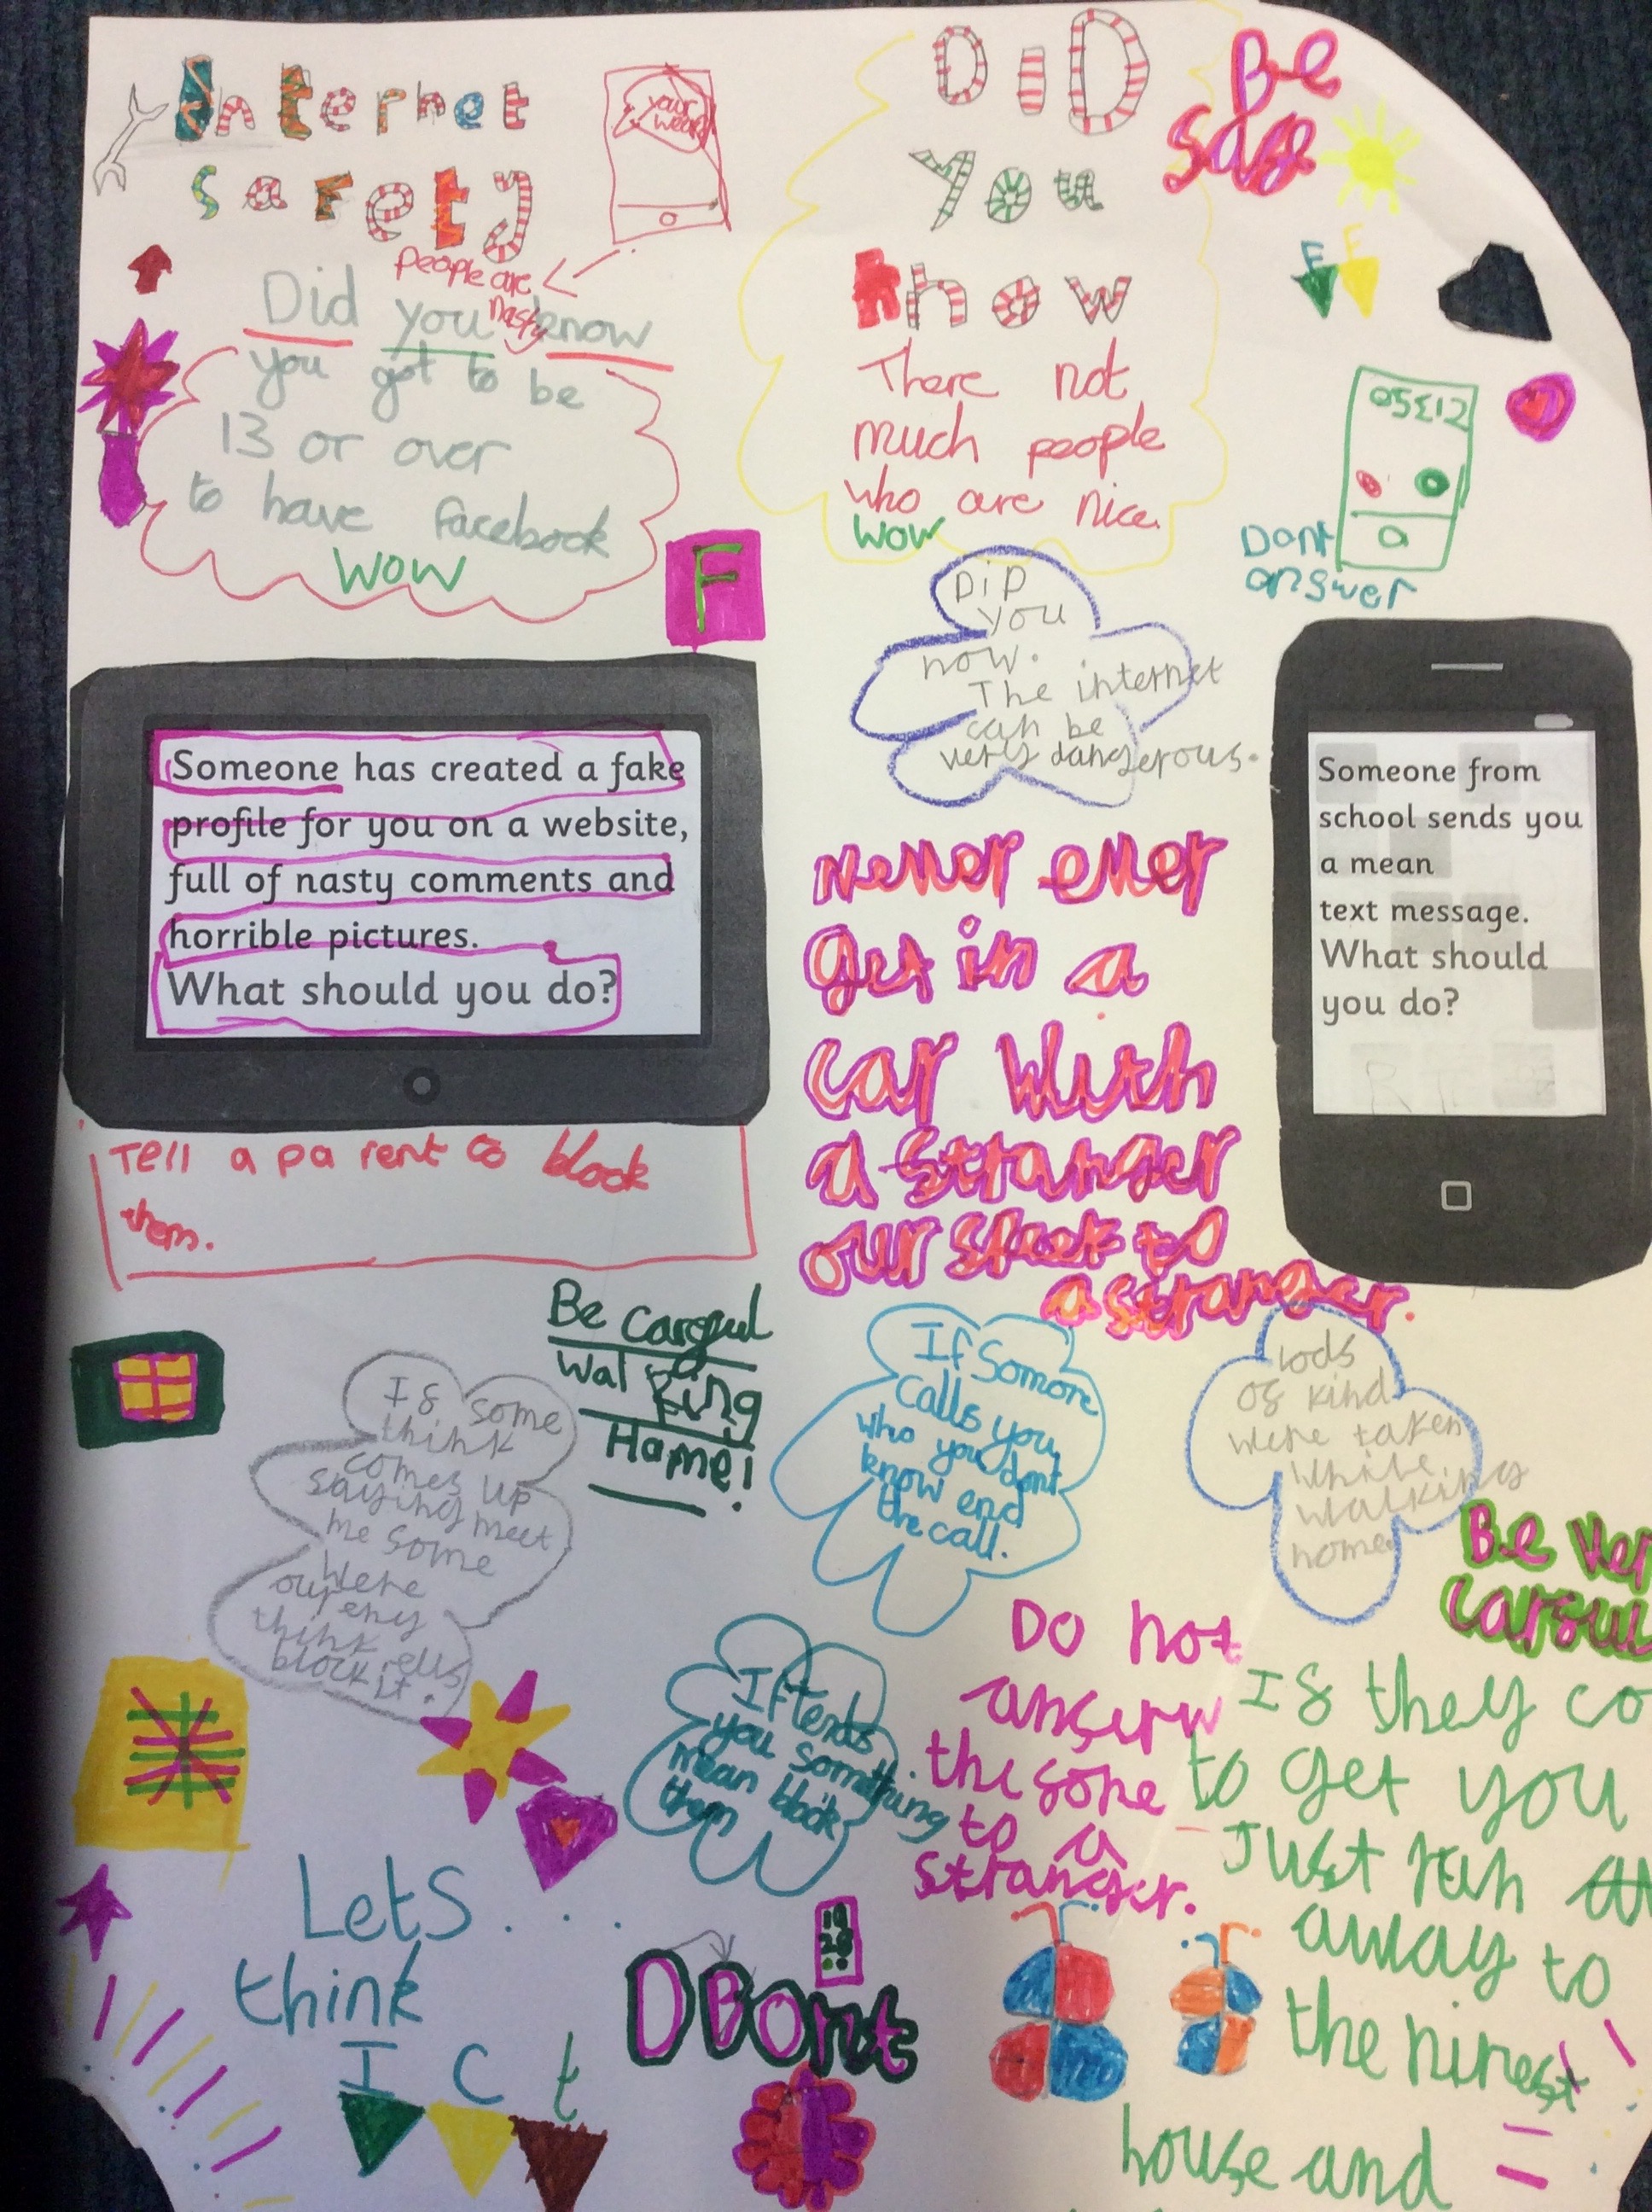 Internet
safety
your
weard
People are
nasty
Did you know
you got to be
13 or over
to have facebook
WOW
F
DiD
You
know
There not
much people
who are nice.
WOW
Be
safe
F F
Dont
answer
DiD
you
now.
The internet
can be
very dangerous.
Someone has created a fake
profile for you on a website,
full of nasty comments and
horrible pictures.
What should you do?
Tell a parent to block
them.
Never ever
get in a
car with
a stranger
our speek to
a stranger.
Someone from
school sends you
a mean
text message.
What should
you do?
Be careful
Walking
Home!
If some
think
comes up
saying meet
me some
were
our eny
think ells
block it.
If Somone
calls you
who you dont
know end
the call.
lods
of kind
were taken
while
walking
home.
Be ver
carfu
If they co
to get you
Just run
away to
the nirest
house and
Do not
anserw
the fone
to a
stranger.
If tends
you something
mean block
them
Lets...
think
I C t